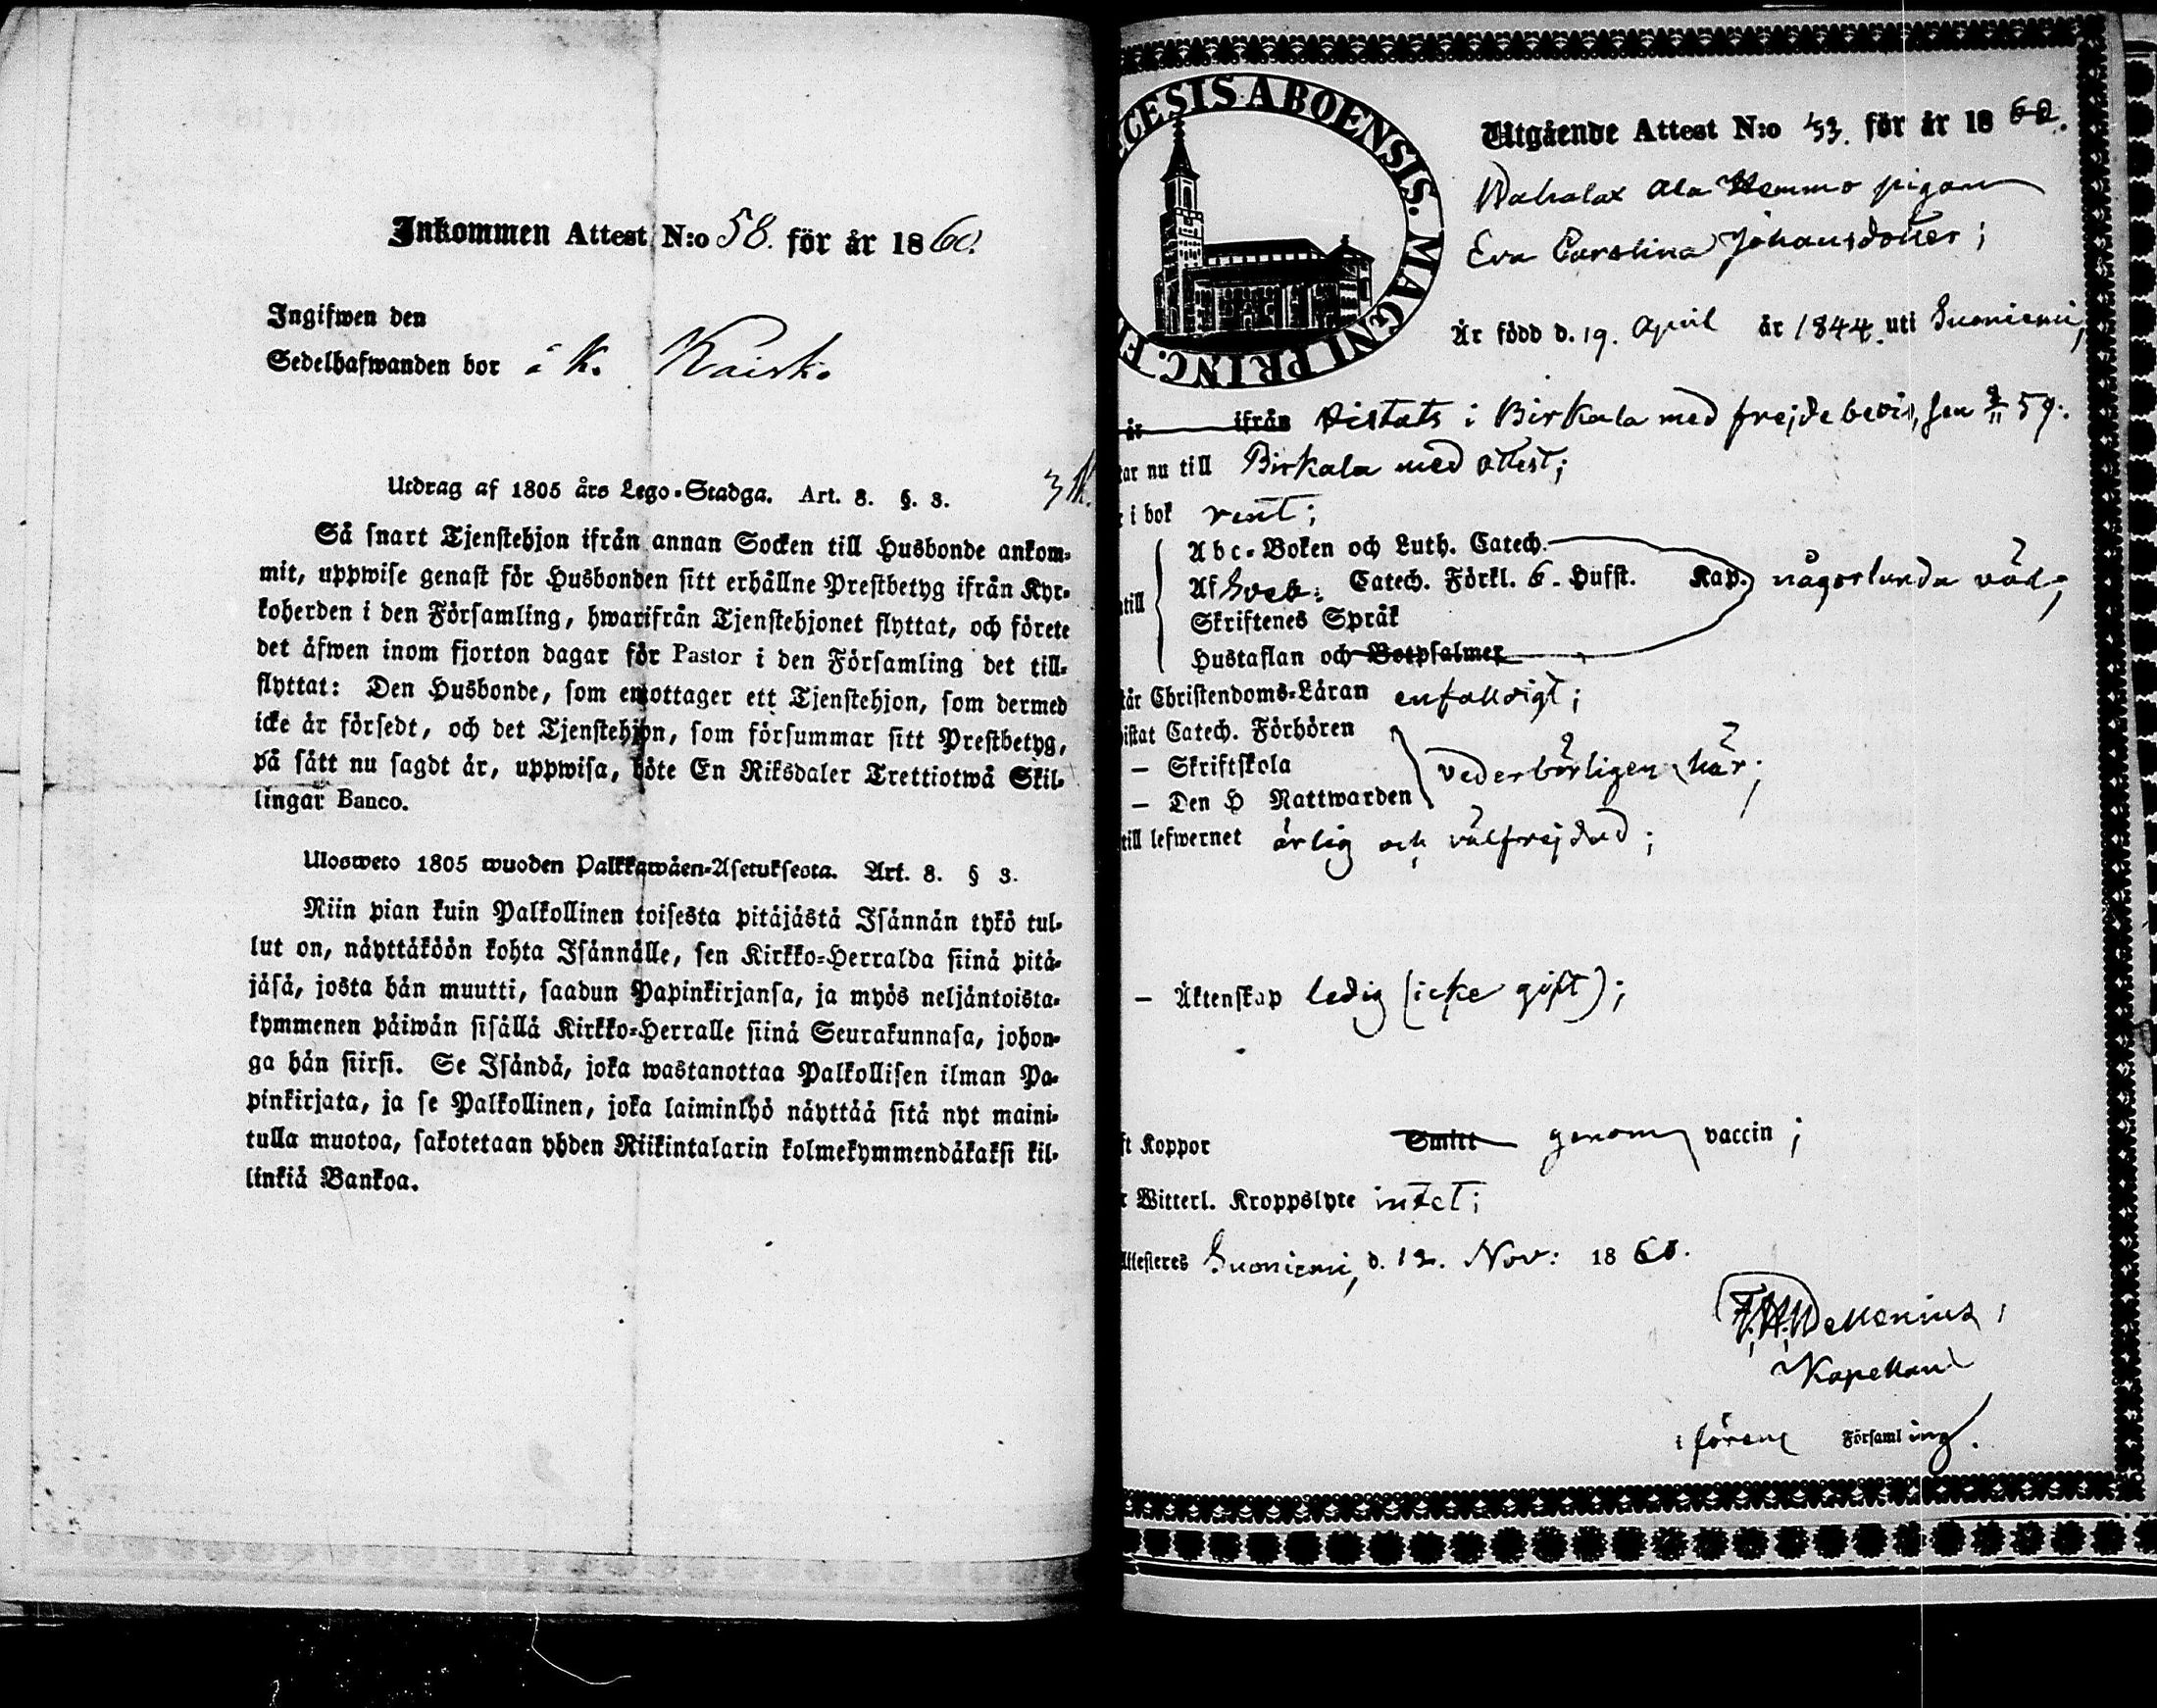 Inkommen Attest N:o 58. för år 1860.
Ingifwen den
Sedelhafwanden bor å K. Kaisk.
Utdrag af 1805 års Lego-Stadga. Art. 8. §. 3.
Så snart Tjenstehjon ifrån annan Socken till Husbonde ankom-
mit, uppwise genast för Husbonden sitt erhållne Prestbetyg ifrån Kyr-
koherden i den Församling, hwarifrån Tjenstehjonet flyttat, och förete
det äfwen inom fjorton dagar för Pastor i den Församling det till-
flyttat: Den Husbonde, som emottager ett Tjenstehjon, som dermed
icke är försedt, och det Tjenstehjon, som försummar sitt Prestbetyg,
på sätt nu sagdt är, uppwisa, böte En Riksdaler Trettiotwå Skil-
lingar Banco.
Ulosweto 1805 wuoden Palkkawäen-Asetuksesta. Art. 8. § 3.
Niin pian kuin Palkollinen toisesta pitäjästä Isännän tykö tul-
lut on, näyttäköön kohta Isännälle, sen Kirkko-Herralda siinä pitä-
jäsä, josta hän muutti, saadun Papinkirjansa, ja myös neljäntoista-
kymmenen päiwän sisällä Kirkko-Herralle siinä Seurakunnasa, johon-
ga hän siirsi. Se Isändä, joka wastanottaa Palkollisen ilman Pa-
pinkirjata, ja se Palkollinen, joka laiminlyö näyttää sitä nyt maini-
tulla muotoa, sakotetaan yhden Riikintalarin kolmekymmendäkaksi kil-
linkiä Bankoa.
CESIS ABOENSIS. MAGNI PRINC. F
Utgående Attest N:o 53. för år 1860.
Wahalax Ala Hemmo pigan
Eva Carolina Johansdotter;
Är född d. 19. April år 1844. uti Suoniemi,
är ifrån vistats i Birkala med frejdebevis, sen 59.
tar nu till Birkala med attest;
i bok rent;
Abc-Boken och Luth. Catech.
till Af Sveb: Catech. Förkl. 6. Hufst. Kap. någorlunda väl;
Skriftenes Språk
Hustaflan och Botpsalmer
tår Christendoms-Läran enfaldigt;
istat Catech. Förhören
— Skriftskola vederbörligen här;
— Den H Nattwarden
till lefwernet ärlig och välfrejdad;
— Äktenskap ledig (icke gift);
ft Koppor Smitt genom vaccin;
r Witterl. Kroppslyte intet;
Attesteres Suoniemi, d. 12. Nov: 1860.
Kapellan
i förens Församling.